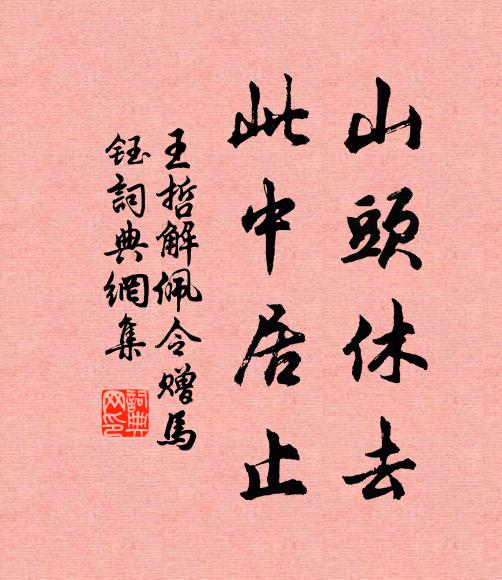 山頭休去
此中居止
王哲解佩令贈馬
鈺詞典網集
詞典
网印